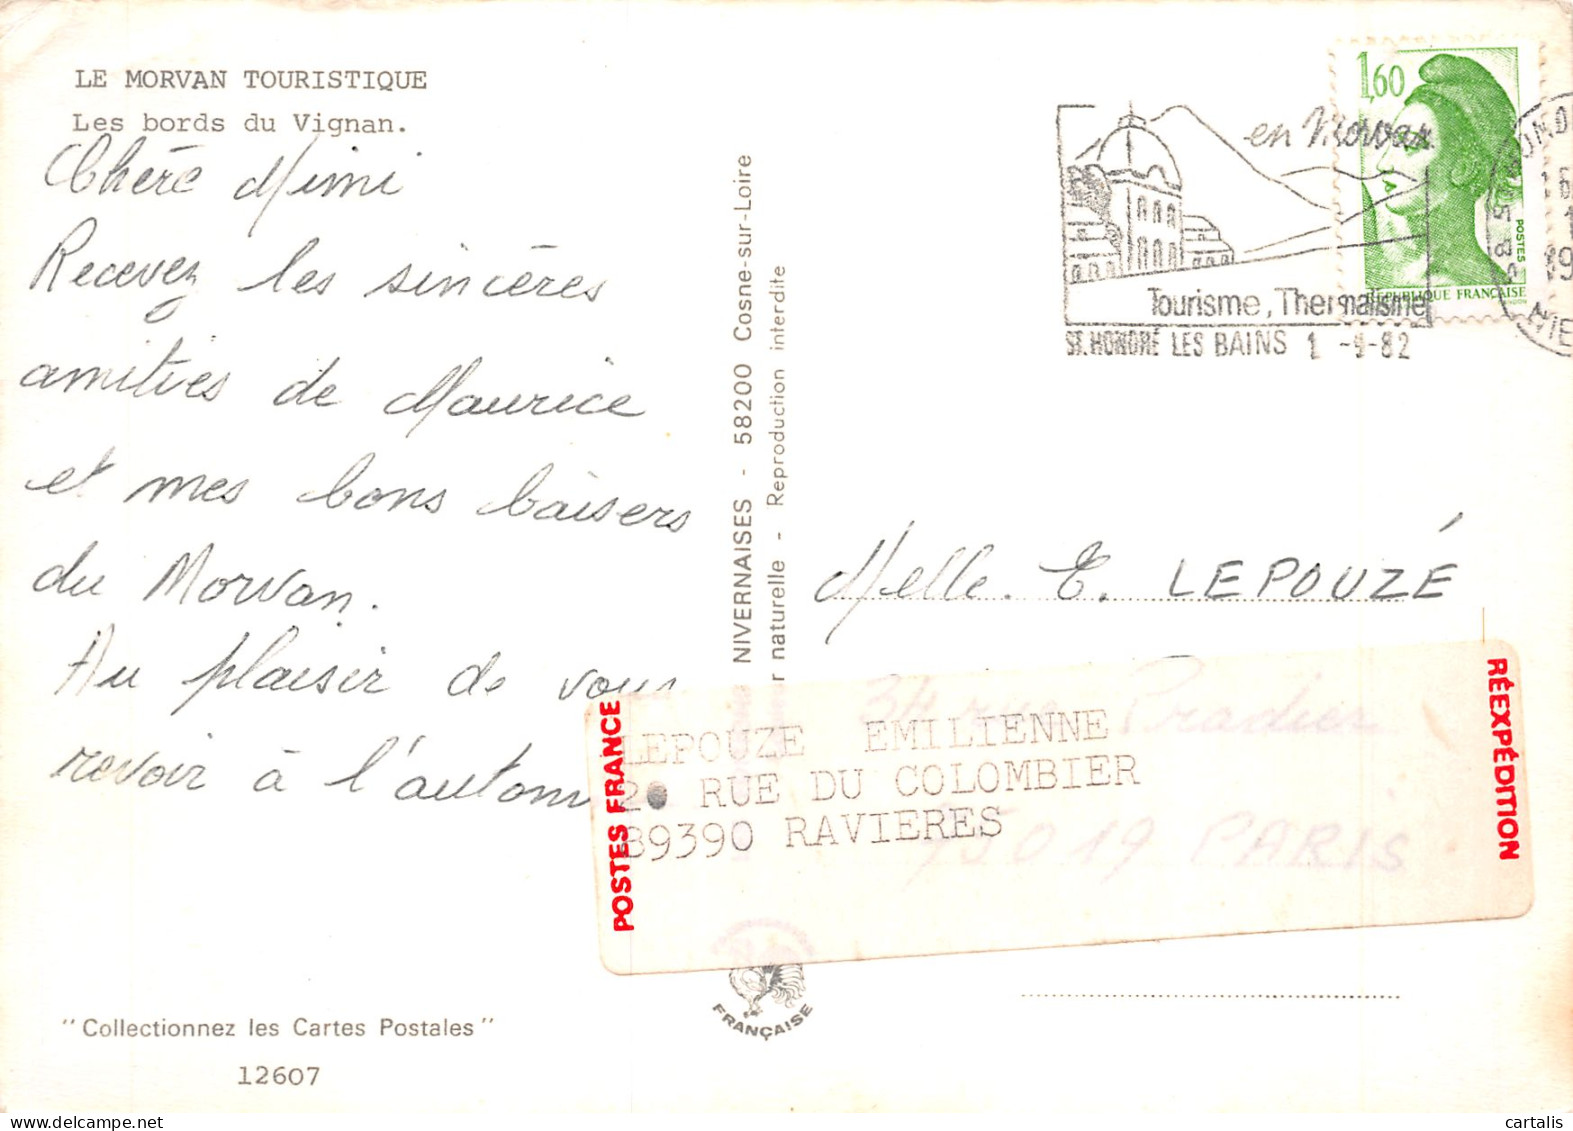 LE MORVAN TOURISTIQUE
Les bords du Vignan.
Chère Mimi
Recevez les sincères
amitiés de Maurice
et mes bons baisers
du Morvan.
Au plaisir de vous
revoir à l'autom
"Collectionnez les Cartes Postales"
12607
NIVERNAISES - 58200 Cosne-sur-Loire
naturelle - Reproduction interdite
FRANÇAISE
en Morvan
Tourisme, Thermalisme
ST. HONORÉ LES BAINS 1 -9-82
1,60
POSTES
REPUBLIQUE FRANÇAISE
Melle. E. LEPOUZÉ
34 rue Pradier
75019 PARIS
POSTES FRANCE
LEPOUZE EMILIENNE
RUE DU COLOMBIER
89390 RAVIERES
RÉEXPÉDITION
cartalis